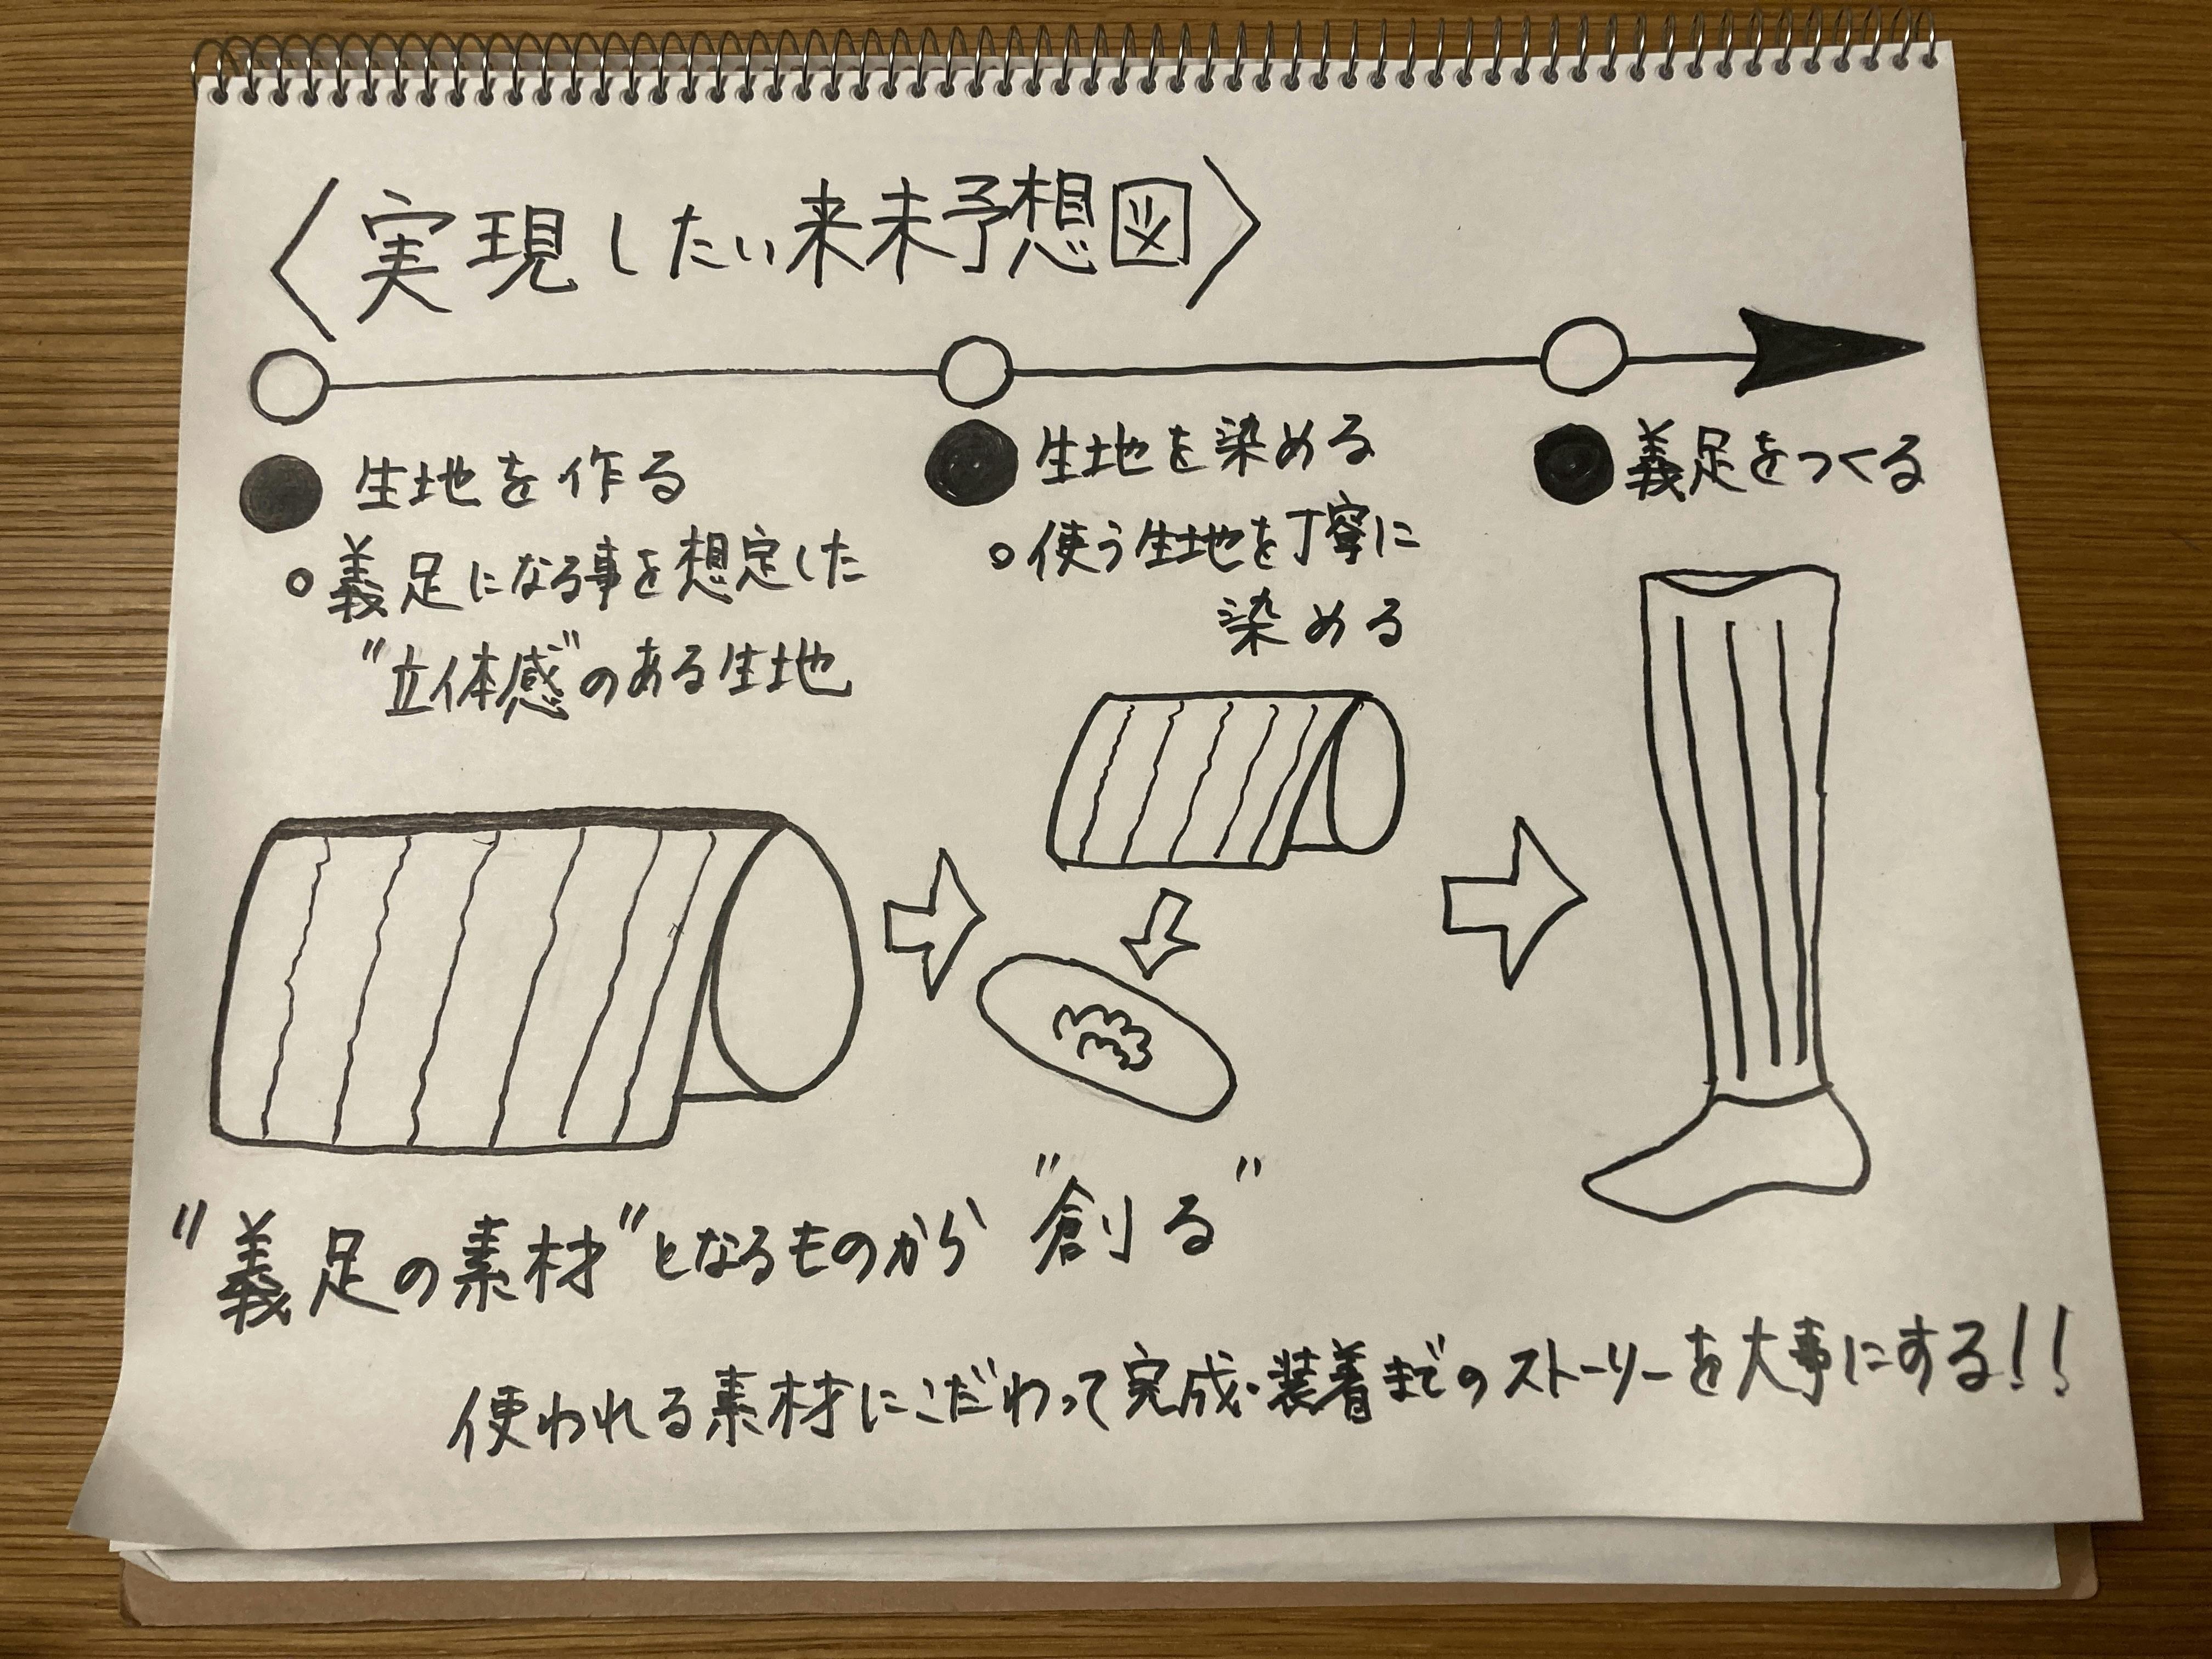 〈実現したい来未予想図〉
● 生地を作る
○義足になる事を想定した
"立体感"のある生地
● 生地を染める
○使う生地を丁寧に
染める
● 義足をつくる
"義足の素材"となるものから"創る"
使われる素材にこだわって完成・装着までのストーリーを大事にする!!